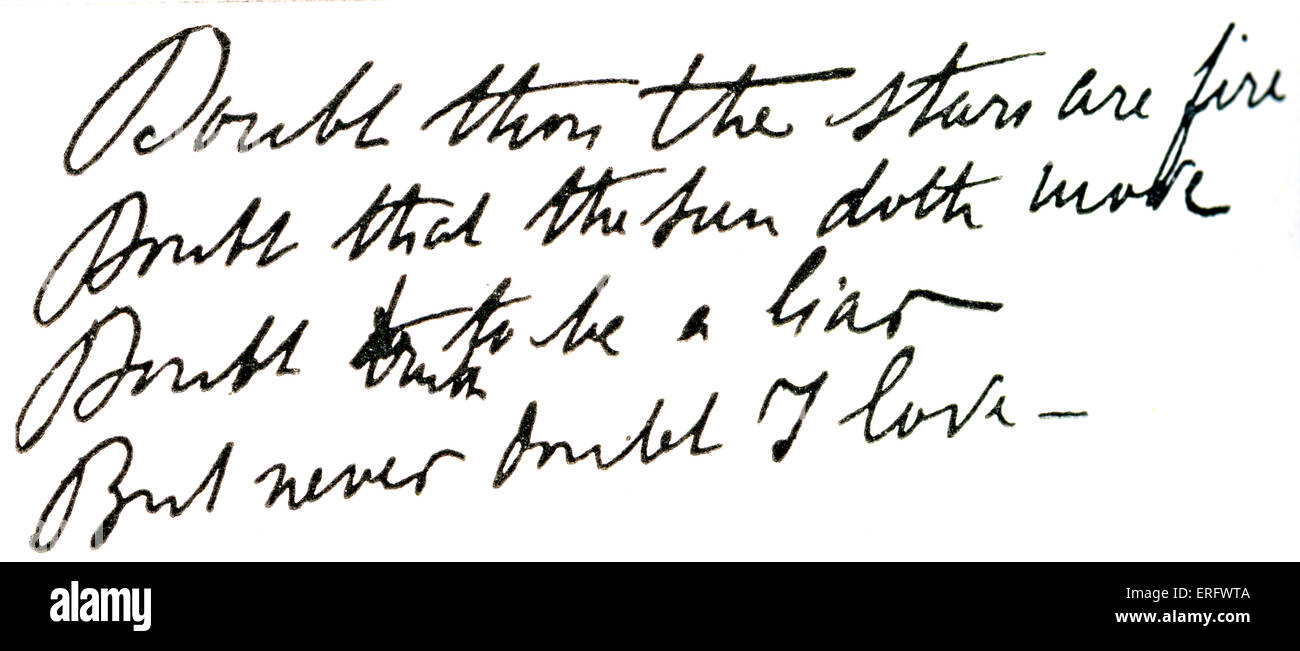 Doubt thou the stars are fire
Doubt that the sun doth move
Doubt truth to be a liar
But never doubt I love —
alamy stock photo
ERFWTA
www.alamy.com